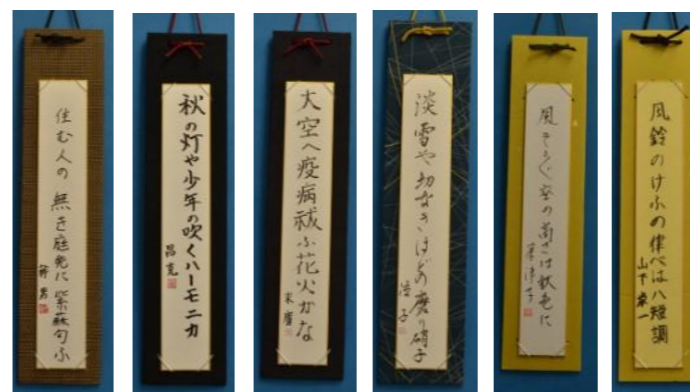 住む人の無き庭先に紫蘇匂ふ
秋の灯や少年の吹くハーモニカ
大空へ疫病祓ふ花火かな
淡雪や切なきほどの磨り硝子
風そよぐ空の高さは秋色に
風鈴のけふの律べはハ短調
山下